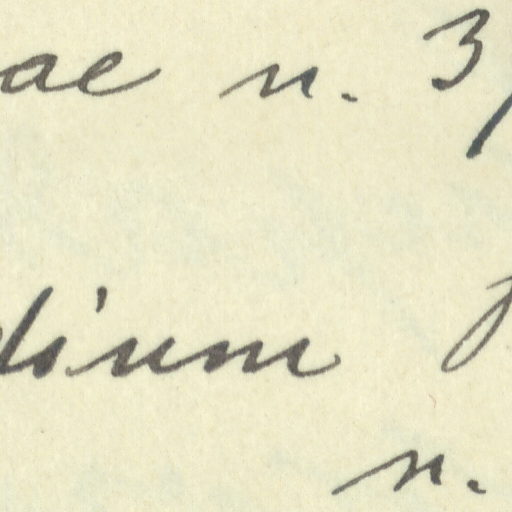 ae n. 3
dium
n.